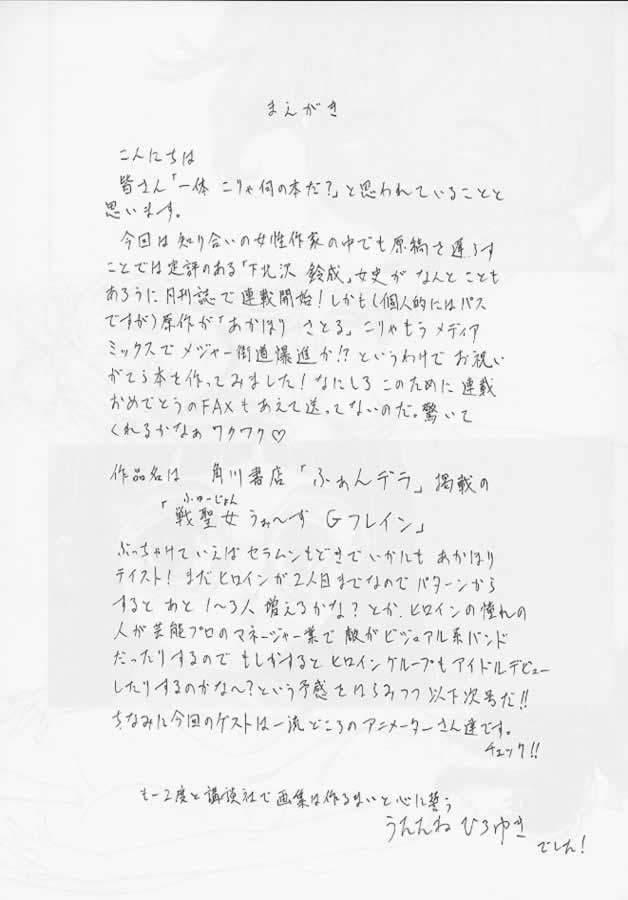 まえがき
こんにちは
皆さん「一体 こりゃ何の本だ?」と思われていることと
思います。
今回は知り合いの女性作家の中でも原稿を遅らす
ことでは定評のある「下北沢 鈴成」女史が なんと こともあろうに 月刊誌で連載開始!しかも(個人的にはパス
ですが)原作が「あかほり さとる」こりゃもう メディア
ミックスで メジャー街道爆進か!?というわけで お祝い
がてら本を作ってみました!なにしろ このために 連載
おめでとうのFAXもあえて送ってないのだ。驚いて
くれるかなぁ ワクワク♡
作品名は 角川書店「ふぁんデラ」掲載の
ふゅーじょん
「戦聖女 うぁ〜ず Gフレイン」
ぶっちゃけていえば セラムンもどきで いかにも あかほり
テイスト! まだヒロインが2人目までなので パターンから
すると あと 1〜3人 増えるかな? とか、ヒロインの憧れの
人が芸能プロのマネージャー業で 敵がビジュアル系バンド
だったりするので もしかすると ヒロイングループもアイドルデビュー
したりするのかな〜?という予感をはらみつつ 以下次号だ!!
ちなみに今回のゲストは一流どころのアニメーターさん達です。
チェック!!
もー2度と講談社で画集は作るまいと心に誓う
うたたね ひろゆき
でした!